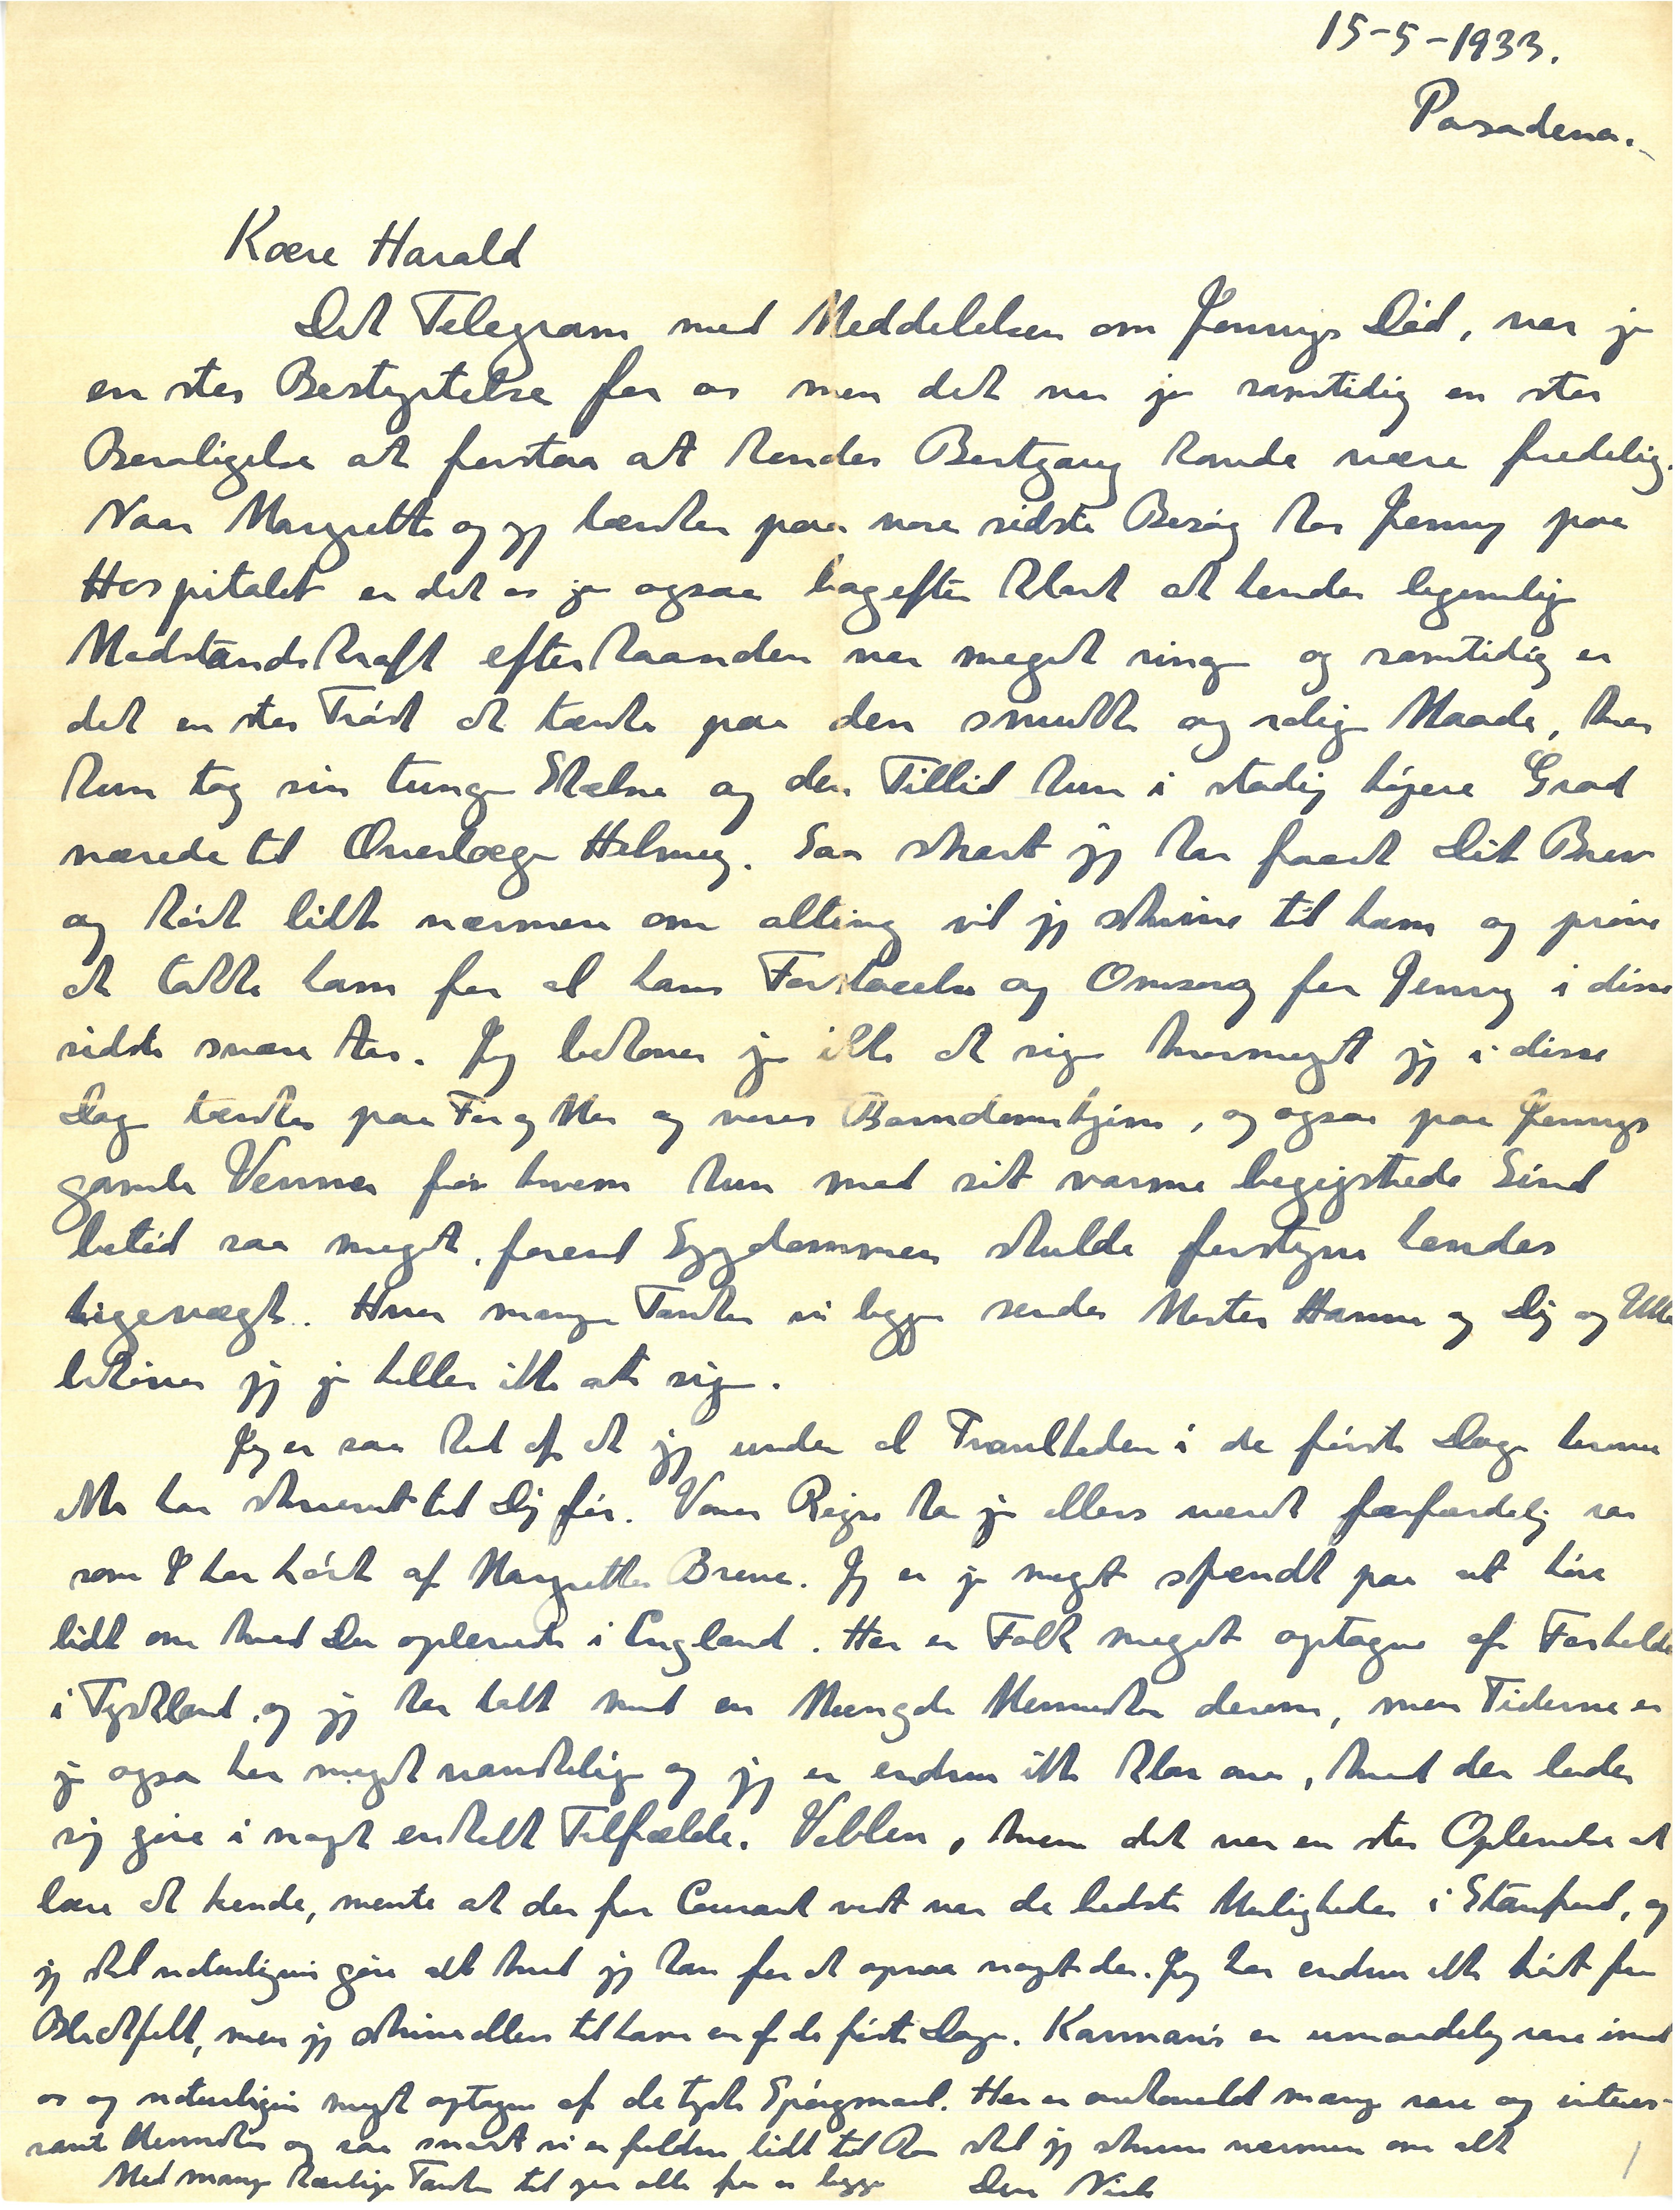 15-5-1933.
Pasadena.
Kære Harald
Det Telegram med Meddelelsen om Jennys Død, var jo
en stor Bestyrtelse for os men det var jo samtidig en stor
Beroligelse at forstaa at hendes Bortgang havde være fredelig.
Naar Margrethe og jeg tænker paa vore sidste Besøg hos Jenny paa
Hospitalet er det os jo ogsaa bagefter klart at hendes legemlige
Modstandskraft efterhaanden var meget ringe og samtidig er
det en stor Trøst at tænke paa den smukke og rolige Maade, hvor
hun tog sin tunge Skæbne og den Tillid hun i stadig højere Grad
nærede til Overlæge Helweg. Saa snart jeg har faaet Dit Brev
og hørt lidt nærmere om alting vil jeg skrive til ham og prøve
at takke ham for al hans Forstaaelse og Omsorg for Jenny i disse
sidste svære Aar. Jeg behøver jo ikke at sige hvormeget jeg i disse
Dage tænker paa Far og Mor og vores Barndomshjem, og ogsaa paa Jennys
gamle Venner for hvem hun med sit varme begejstrede Sind
betød saa meget, forend Sygdommen skulde forstyrre hendes
Ligevægt. Hvor mange Tanker vi begge sender Moster Hanna og Dig og Ulla
behøver jeg jo heller ikke at sige.
Jeg er saa ked af at jeg under al Travlheden i de første Dage herovre
ikke har skrevet til Dig før. Vores Rejse har jo ellers været forfærdelig rar
som I har hørt af Margrethes Breve. Jeg er jo meget spændt paa at høre
lidt om hvad Du oplevede i England. Her er Folk meget optagne af Forholdene
i Tyskland, og jeg har talt med en Mængde Mennesker derom, men Tiderne er
jo ogsaa her meget vanskelige og jeg er endnu ikke klar over, hvad der lader
sig gøre i noget enkelt Tilfælde. Veblen, hvem det var en stor Oplevelse at
lære at kende, mente at der for Courant vist var de bedste Muligheder i Stanford, og
jeg skal naturligvis gøre alt hvad jeg kan for at opnaa noget der. Jeg har endnu ikke hørt fra
Blichfeldt, men jeg skriver ellers til ham en af de første Dage. Karman's er umaadelig rare imod
os og naturligvis meget optagne af de tyske Spørgsmaal. Her er overhovedet mange rare og interes-
sante Mennesker og saa snart vi er falden lidt til Ro skal jeg skrive nærmere om alt
Med mange kærlige Tanker til jer alle fra os begge Din Niels
1